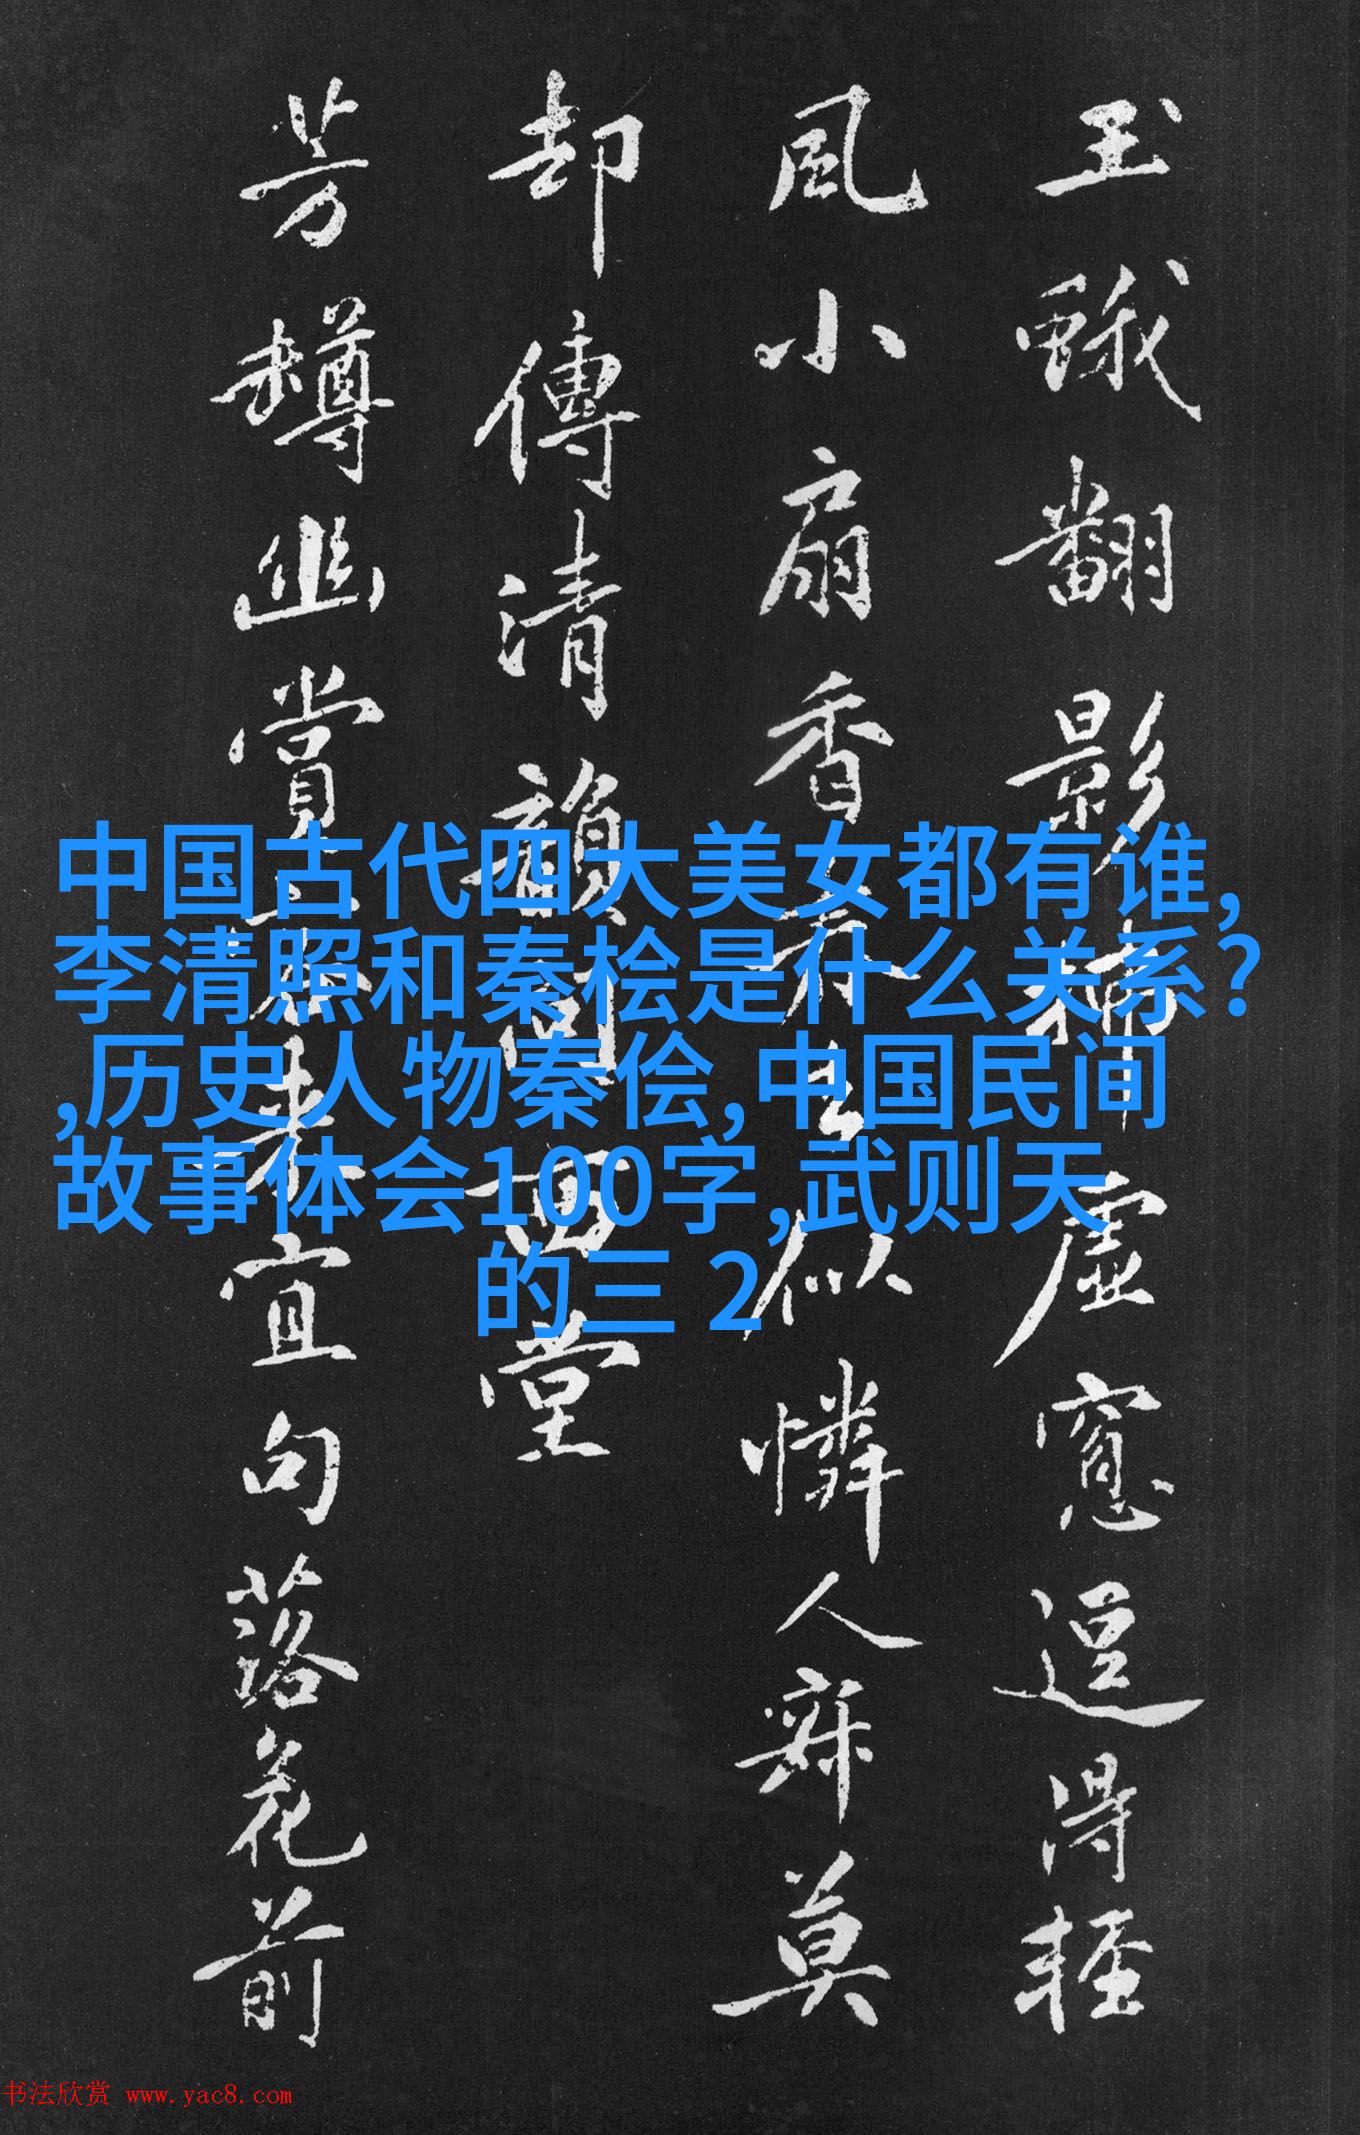 玉蛾翻影拂虛窻逗得輕
風小扇香似憐人寂莫
却傳清韻西堂
芳樽幽賞宜句落花前
中国古代四大美女都有谁,
李清照和秦桧是什么关系?
,历史人物秦侩,中国民间
故事体会100字,武则天
的三 2
书法欣赏 www.yac8.com